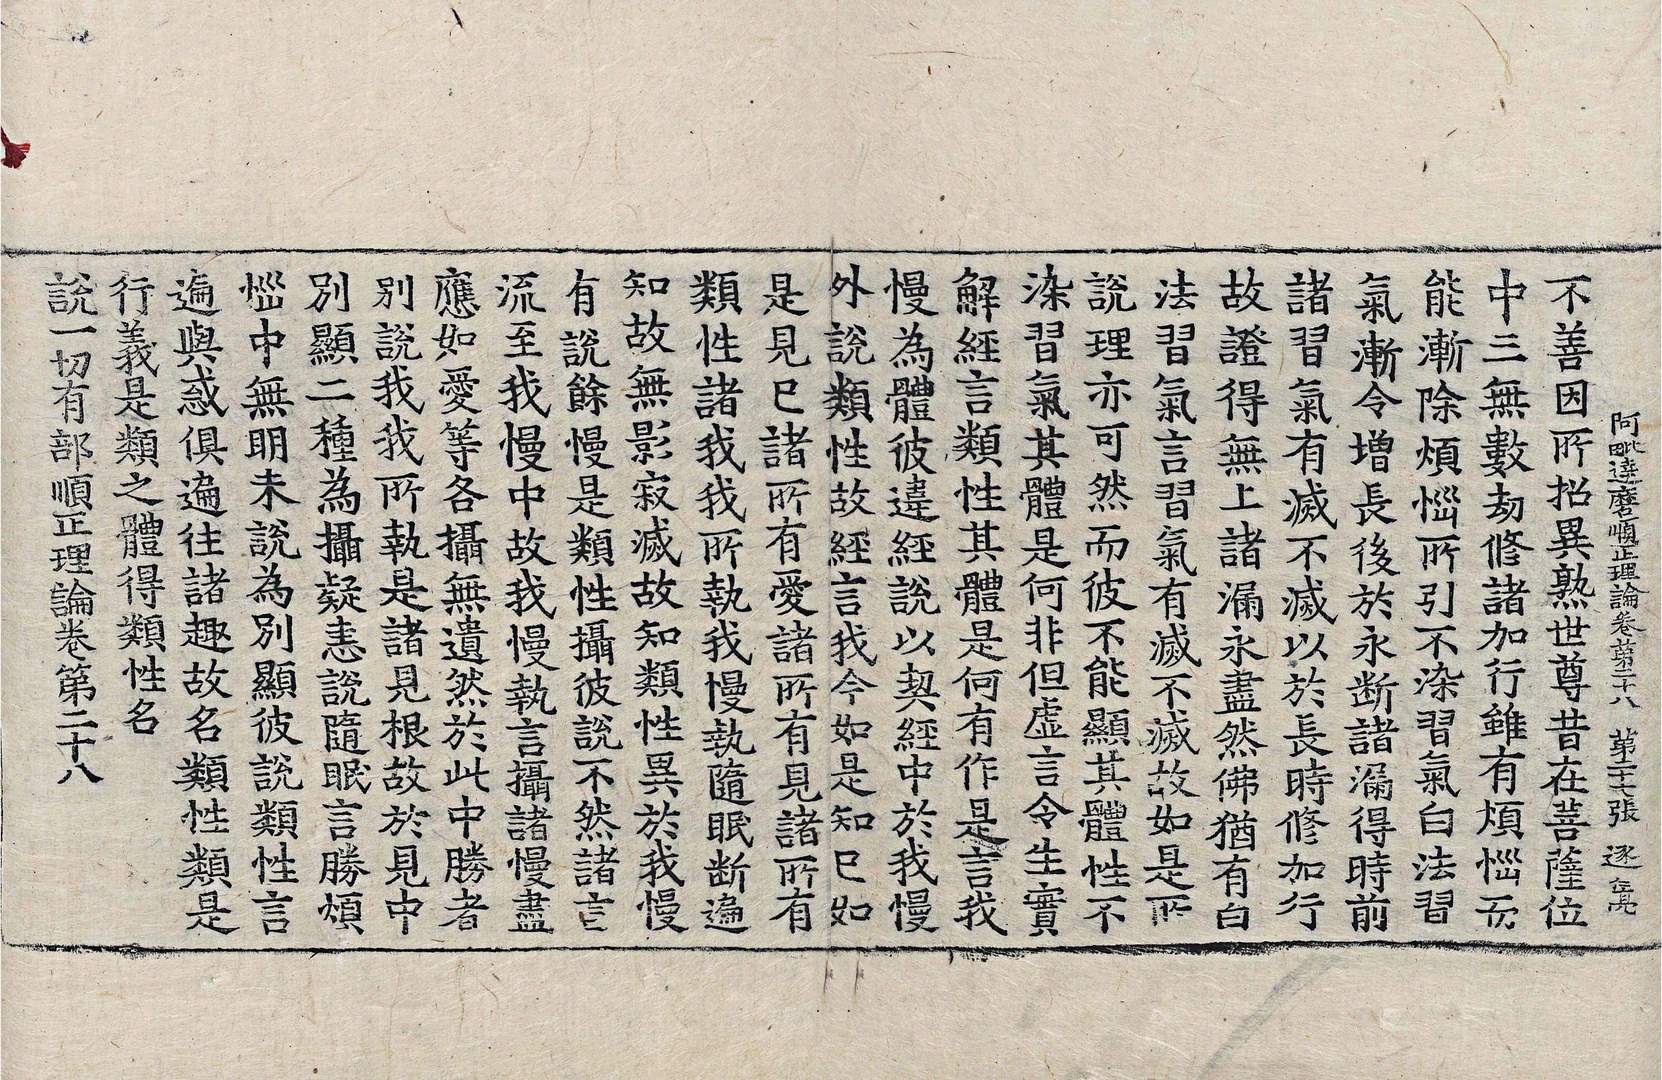 阿毗達磨順正理論卷第二十八 第二十七張 逐 亮
不善因所招異熟世尊昔在菩薩位
中三無數劫修諸加行雖有煩惱而
能漸除煩惱所引不染習氣白法習
氣漸令增長後於永断諸漏得時前
諸習氣有滅不滅以於長時修加行
故證得無上諸漏永盡然佛猶有白
法習氣言習氣有滅不滅故如是所
說理亦可然而彼不能顯其體性不
染習氣其體是何非但虛言令生實
解經言類性其體是何有作是言我
慢為體彼違經說以契經中於我慢
外說類性故經言我今如是知已如
是見已諸所有愛諸所有見諸所有
類性諸我我所執我慢執隨眠断遍
知故無影寂滅故知類性異於我慢
有說餘慢是類性攝彼說不然諸言
流至我慢中故我慢執言攝諸慢盡
應如愛等各攝無遺然於此中勝者
別說我我所執是諸見根故於見中
別顯二種為攝疑恚說隨眠言勝煩
惱中無明未說為別顯彼說類性言
遍與惑俱遍往諸趣故名類性類是
行義是類之體得類性名
說一切有部順正理論卷第二十八